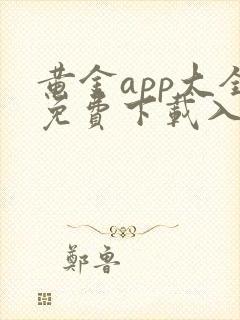 黄金app大全
免費下載入
鄭魯